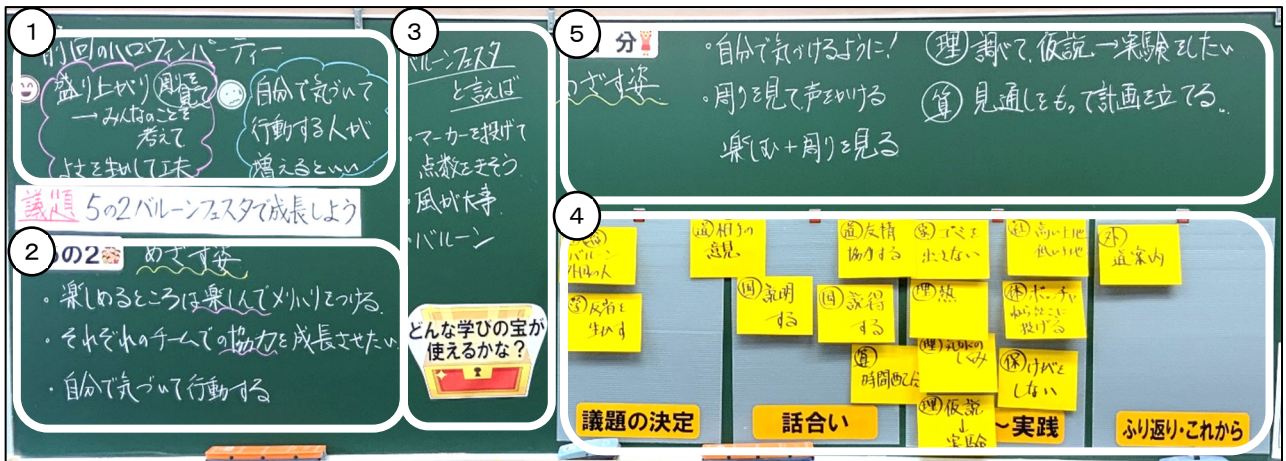 ①
前回のハロウィンパーティー
盛り上がり 周りを見て
→みんなのことを
考えて
よさを生かして工夫
自分で気づいて
行動する人が
増えるといい
議題 5の2バルーンフェスタで成長しよう
②
の2 めざす姿
・楽しめるところは楽しんでメリハリをつける。
・それぞれのチームでの協力を成長させたい
・自分で気づいて行動する
③
バルーンフェスタ
と言えば
・マーカーを投げて
点数をきそう。
・風が大事
・バルーン
どんな学びの宝が
使えるかな？
⑤
分
めざす姿
・自分で気づけるように!
・周りを見て声をかける
楽しむ+周りを見る
理 調べて、仮説→実験をしたい
算 見通しをもって計画を立てる。
④
バルーン
外国の人
学 反省を
生かす
議題の決定
道 相手の
意見
国 説明
する
国 説得
する
道 友情
協力する
算
時間配分
話合い
家 ゴミを
出さない
理 熱
理
しくみ
理 仮説
↓
実験
社 高い土地
低い土地
体 ボッチャ
ねらったところに
投げる
保 けがを
しない
～実践
外
道案内
ふり返り・これから